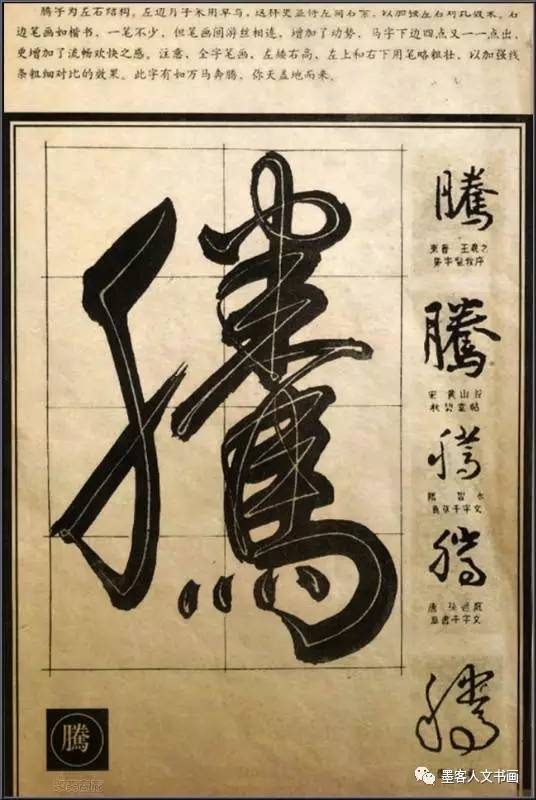 腾字为左右结构。左边月字采用草写，这样更显得左简右繁，以加强左右对比效果。右
边笔画如楷书，一笔不少，但笔画间游丝相连，增加了动势，马字下边四点又一一点出，
更增加了流畅欢快之感。注意，全字笔画，左矮右高，左上和右下用笔略粗壮，以加强线
条粗细对比的效果。此字有如万马奔腾，弥天盖地而来。
騰
騰
東晋 王羲之
聖字聖教序
騰
宋 黄山谷
騰
隋 智永
真草千字文
騰
唐 孫過庭
草書千字文
騰
騰
墨客人文书画